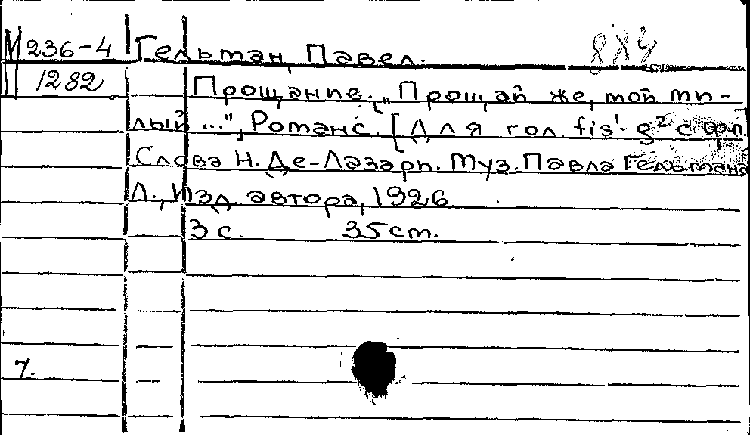 М 236-4 Гельман, Павел.
1282
Прощание. „Прощай же, мой ми-
лый ...", Романс. [Для гол. fis¹-g² с фп.
Слова Н. Де-Лазари. Муз. Павла Гельмана
Л., Изд. автора, 1926
3 с. 35 cm.